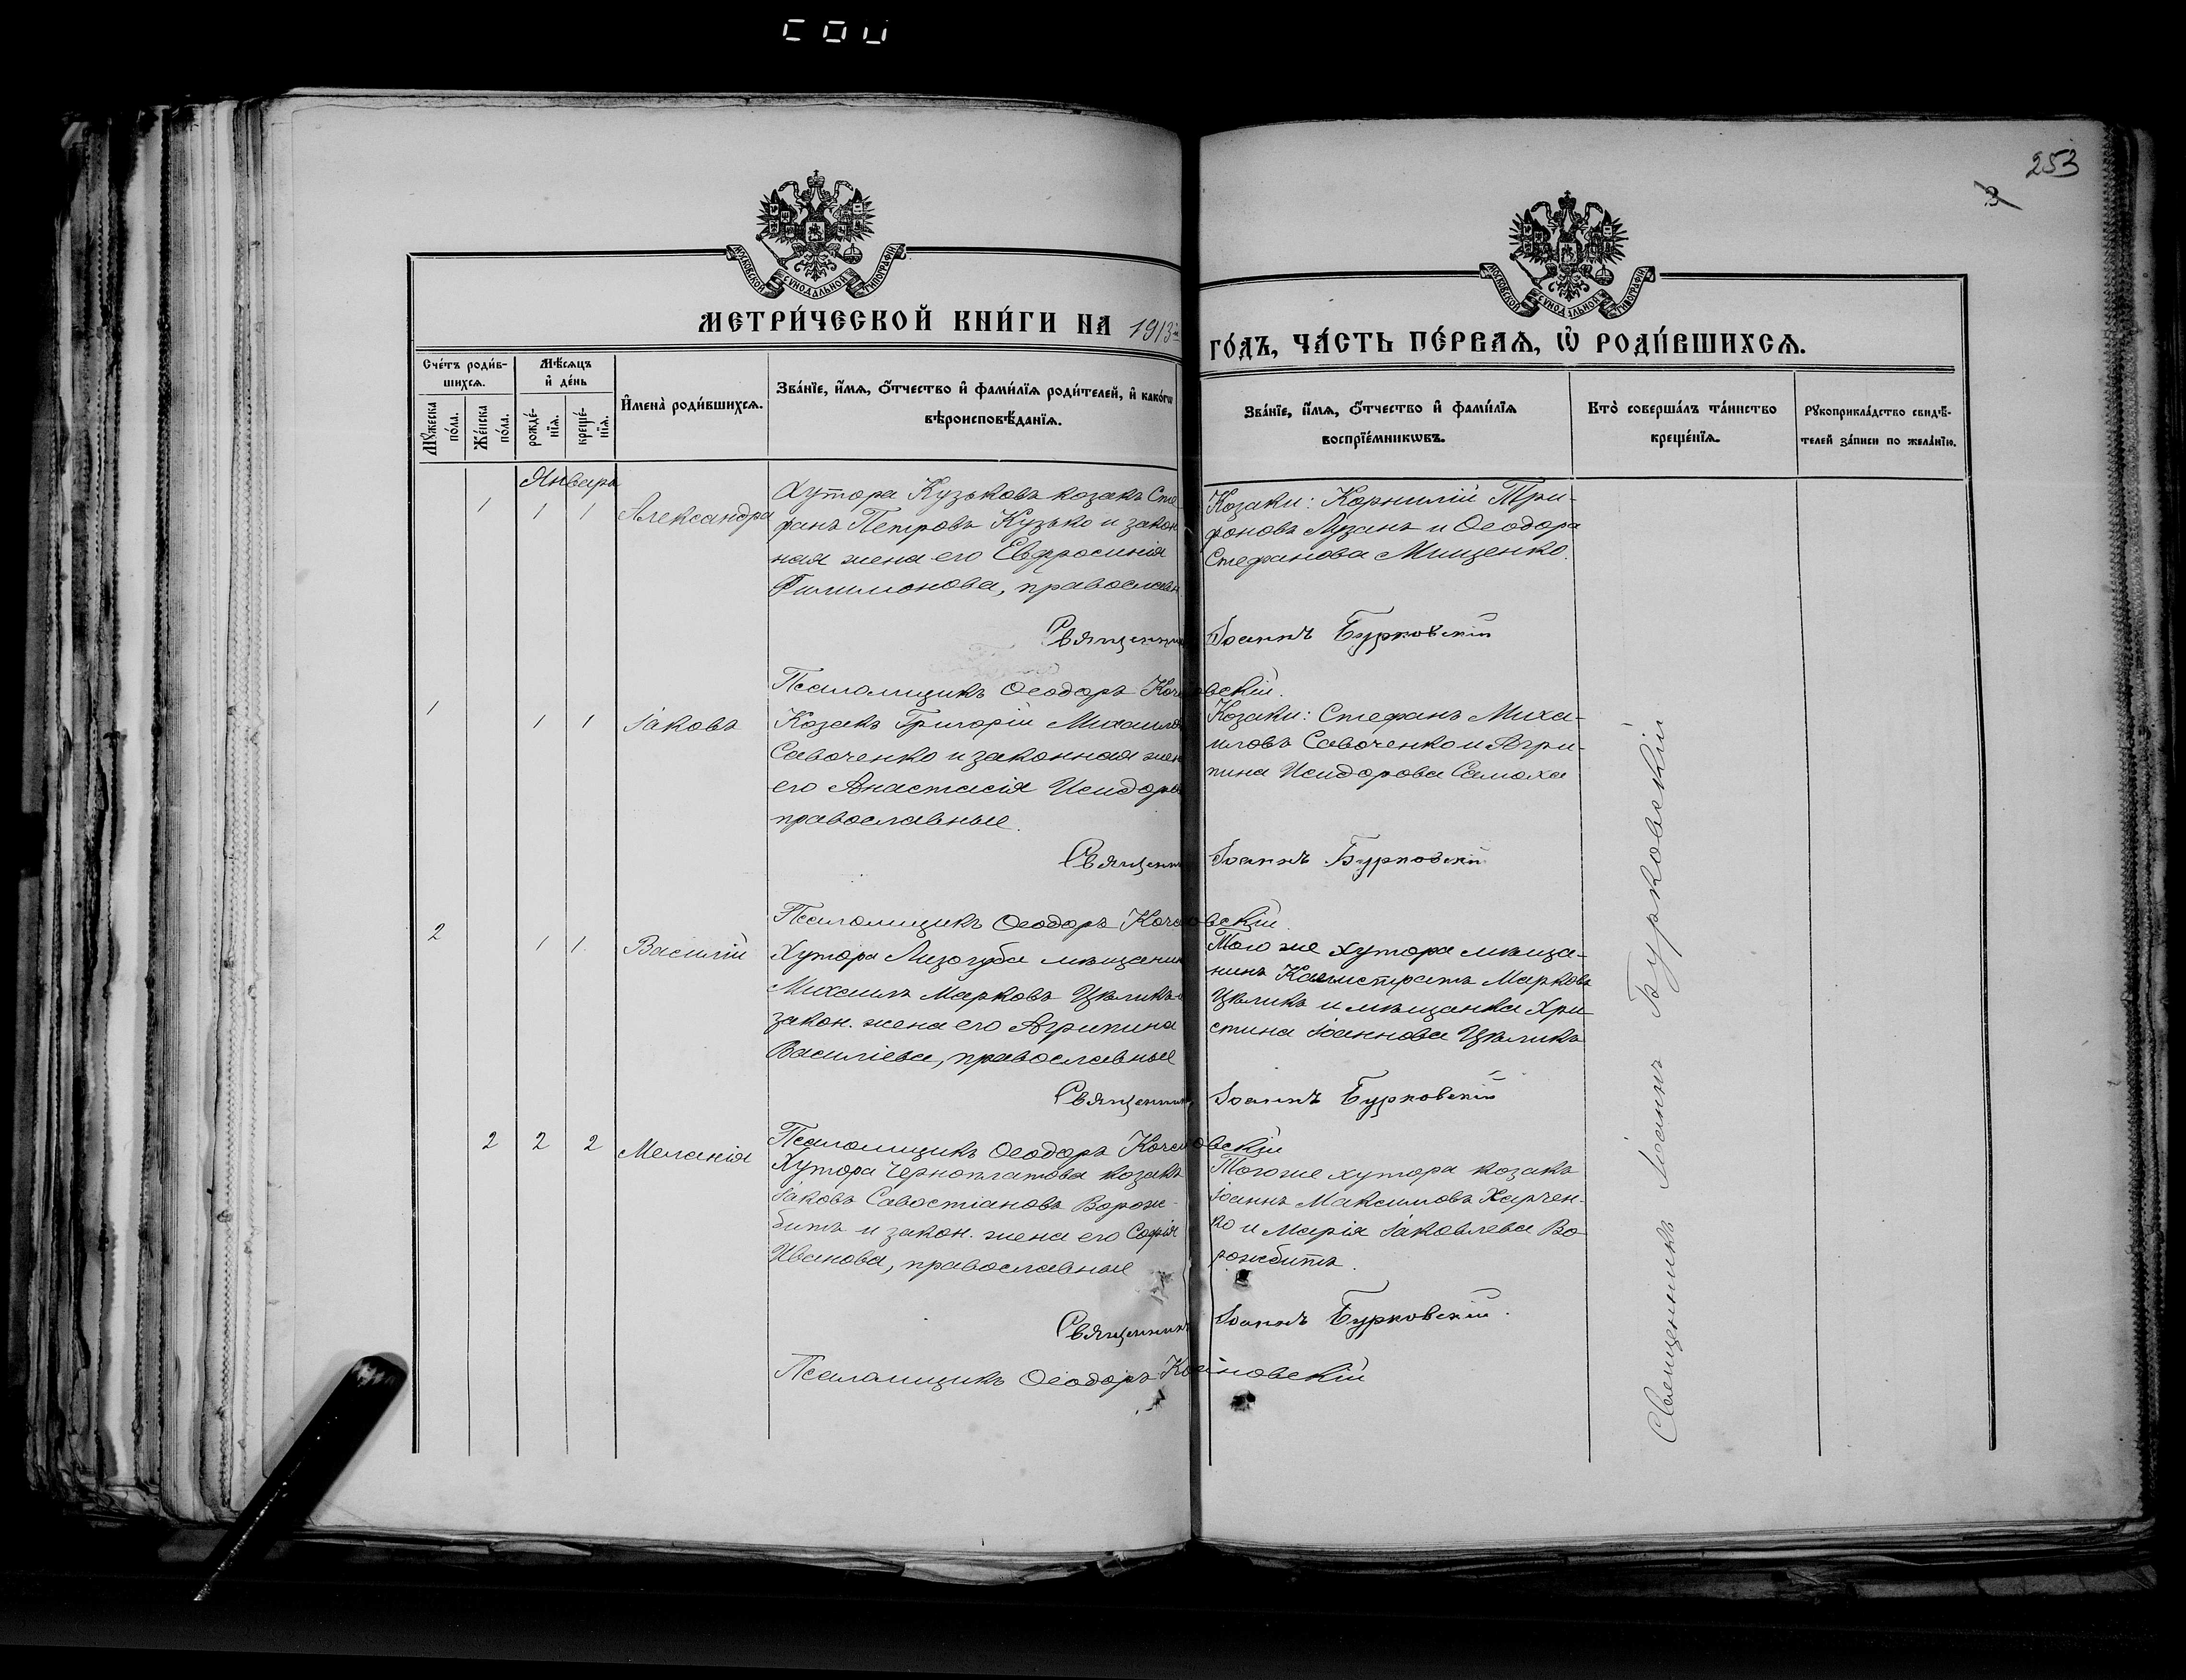 253
3
МОСКОВСКОЙ СѴНОДАЛЬНОЙ ТИПОГРАФІИ
МОСКОВСКОЙ СѴНОДАЛЬНОЙ ТИПОГРАФІИ
МЕТРИ́ЧЕСКОЙ КНИ́ГИ НА 1913й
ГО́ДЪ, ЧА́СТЬ ПЕ́РВАѦ, Ѡ҆ РОДИ́ВШИХСѦ.
Сче́тъ роди́в-
шихсѧ.
Мꙋ́жеска
по́ла.
Же́нска
по́ла.
Мѣ́сѧцъ
и҆ де́нь
рожде́-
нїѧ.
креще́-
нїѧ.
И҆мена̀ роди́вшихсѧ.
Зва́нїе, и҆́мѧ, ѻ҆́тчество и҆ фами́лїѧ роди́телей, и҆ како́гѡ
вѣроисповѣ́данїѧ.
Зва́нїе, и҆́мѧ, ѻ҆́тчество и҆ фами́лїѧ
воспрїе́мникѡвъ.
Кто̀ соверша́лъ та́инство
креще́нїѧ.
Рꙋкоприкла́дство свидѣ́-
телей за́писи по жела́нїю.
Январь
1 1 1 Александра
Хутора Кузьковъ козакъ Сте
фанъ Петровъ Кузько и закон
ная жена его Евфросинія
Филимонова, православн
Козаки: Корнилій Три-
фоновъ Лузанъ и Ѳеодора
Стефанова Мищенко.
Священникъ Іоаннъ Бурковскій
Псаломщикъ Ѳеодоръ Кочановскій.
1 1 1 Іаковъ
Козакъ Григорій Михаилов
Савоченко и законная жен
его Анастасія Исидоров
православные.
Козаки: Стефанъ Миха-
иловъ Савоченко и Агри-
пина Исидорова Самоха
Священникъ Іоаннъ Бурковскій
Псаломщикъ Ѳеодоръ Кочановскій
2 1 1. Василій
Хутора Лизогуба мѣщанин
Михаилъ Марковъ Цѣликъ и
закон. жена его Агрипина
Василіева, православные
Того же хутора мѣща-
нинъ Калистратъ Марковъ
Цѣликъ и мѣщанка Хри
стина Іоаннова Цѣликъ
Священникъ Іоаннъ Бурковскій
Псаломщикъ Ѳеодоръ Кочановскій
2 2 2 Меланія
Хутора Черноплатова козакъ
Іаковъ Савостіановъ Ворож-
битъ и закон. жена его Софія
Иванова, православные
Того же хутора козакъ
Іоаннъ Максимовъ Харчен-
ко и Марія Іаковлева Во
рожбитъ.
Священникъ Іоаннъ Бурковскій.
Псаломщикъ Ѳеодоръ Кочановскій
Священникъ Іоаннъ Бурковскій